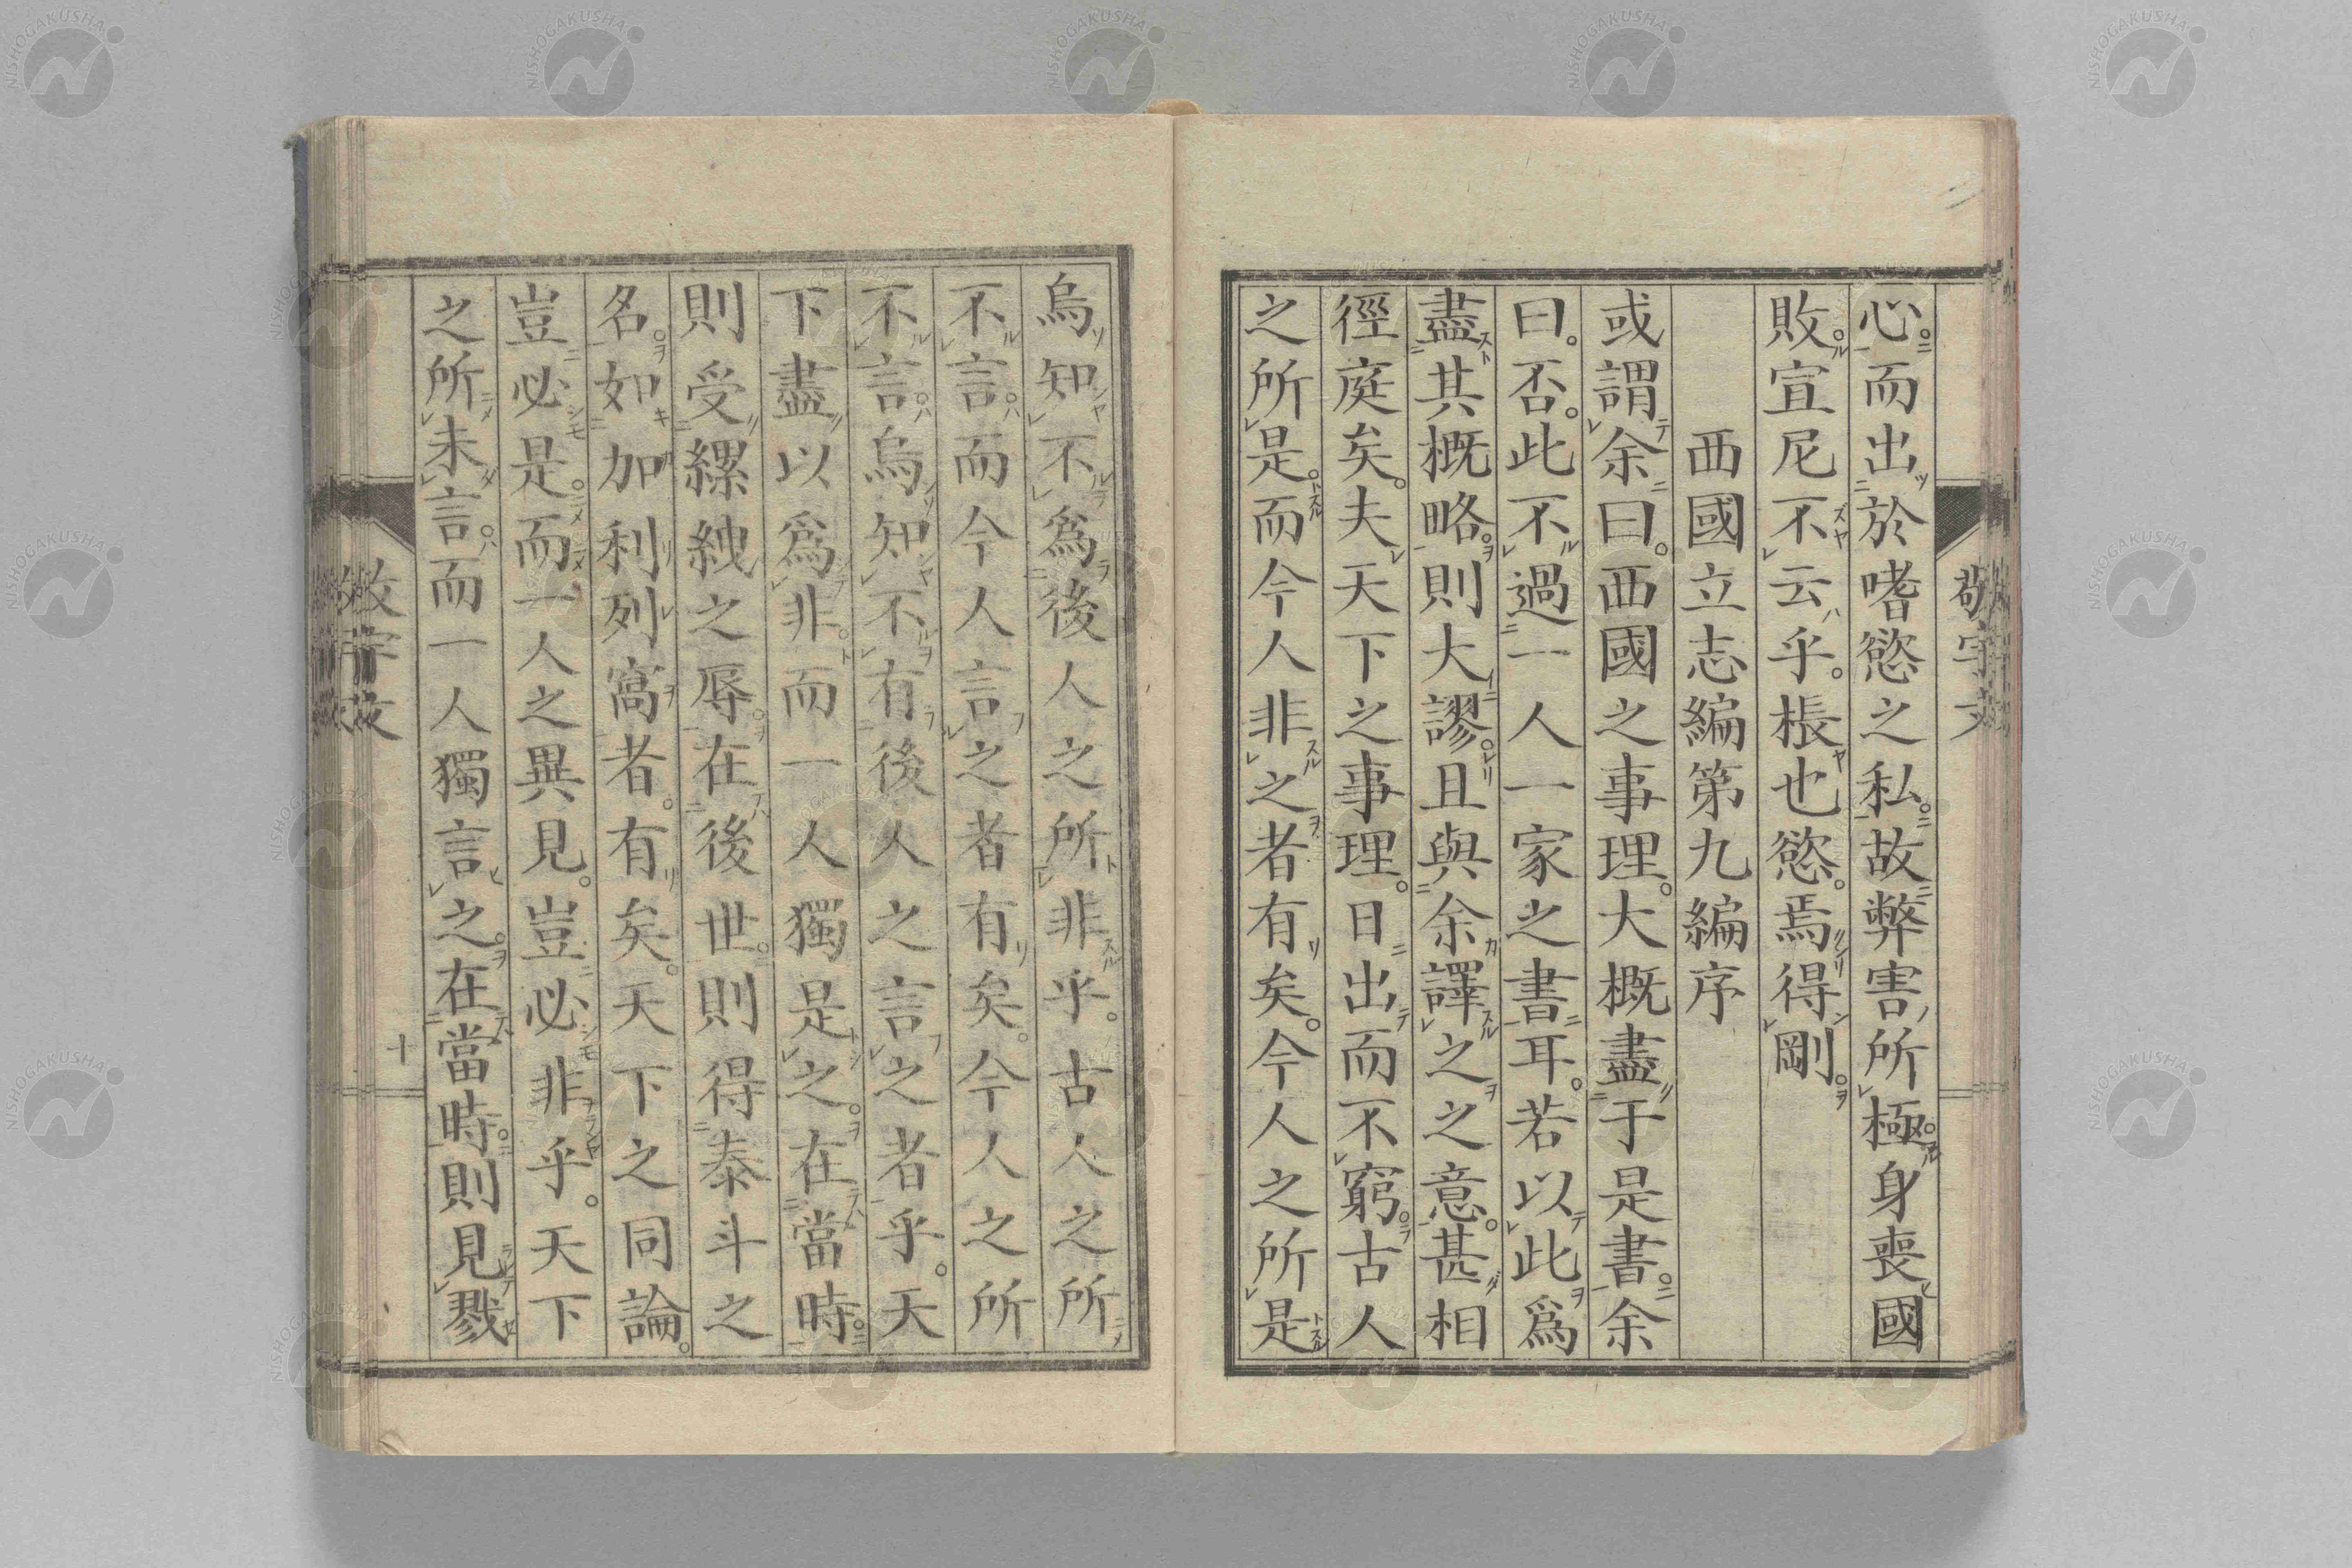 心。而出於嗜慾之私。故弊害所極。身喪國
敗。宣尼不云乎。棖也慾。焉得剛。
西國立志編第九編序
或謂余曰。西國之事理。大概盡于是書。余
曰。否。此不過一人一家之書耳。若以此爲
盡其概略。則大謬。且與余譯之之意。甚相
徑庭矣。夫天下之事理。日出而不窮。古人
之所是。而今人非之者有矣。今人之所是
烏知不爲後人之所非乎。古人之所
不言。而今人言之者有矣。今人之所
不言。烏知不有後人之言之者乎。天
下盡以爲非。而一人獨是之。在當時。
則受縲絏之辱。在後世。則得泰斗之
名。如加利列窩者。有矣。天下之同論。
豈必是。而一人之異見。豈必非乎。天下
之所未言。而一人獨言之。在當時。則見戮
敬宇文
十
NISHOGAKUSHA